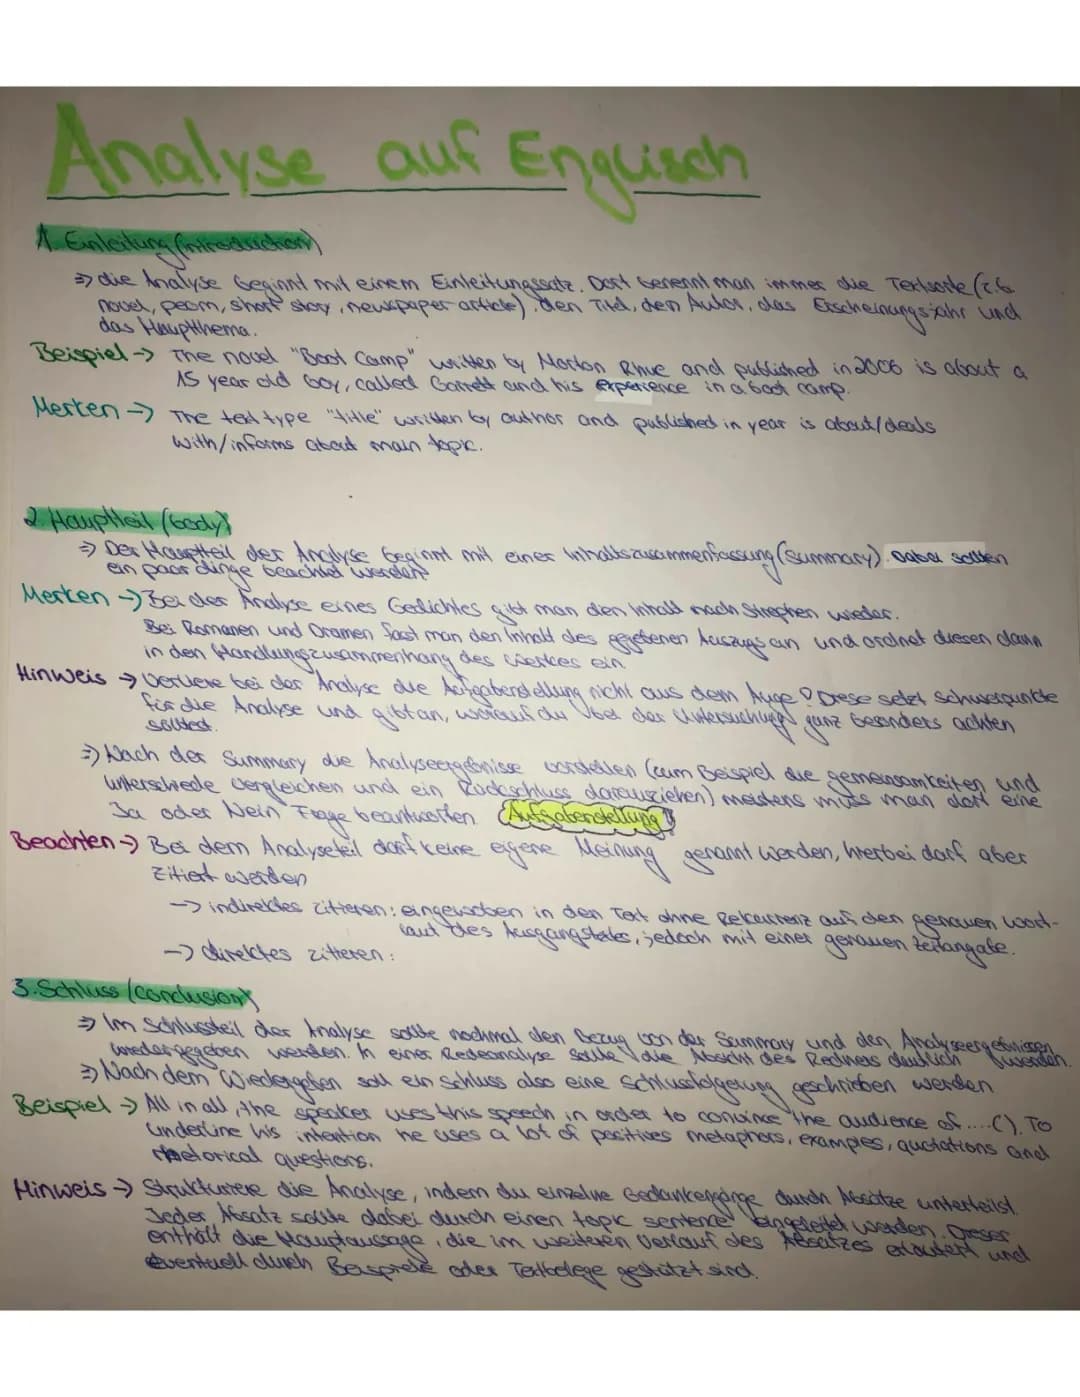 Analyse auf Englisch
1. Einleitung (introduction)
=> die Analyse beginnt mit einem Einleitungssatz. Dort benennt man immer die Textsorte (z.b
novel, peom, short story, newspaper article), den Titel, den Autor, das Erscheinungsjahr und
das Hauptthema.
Beispiel -> The novel "Boot Camp" written by Morton Rhue and published in 2006 is about a
15 year old boy, called Garrett and his experience in a boot camp.
Merken -> The text type "title" written by author and published in year is about/deals
with/informs about main topic.
2. Hauptteil (body)
=> Der Hauptteil der Analyse beginnt mit einer Inhaltszusammenfassung (Summary). Dabei sollten
ein paar dinge beachtet werden:
Merken -> Bei der Analyse eines Gedichtes gibt man den Inhalt nach Strophen wieder.
Bei Romanen und Dramen fasst man den Inhalt des gegebenen Auszugs an und ordnet diesen dann
in den Handlungszusammenhang des Werkes ein.
Hinweis -> Verliere bei der Analyse die Aufgabenstellung nicht aus dem Auge! Diese setzt Schwerpunkte
für die Analyse und gibt an, worauf du bei der Untersuchung ganz besonders achten
solltest.
=> Nach der Summary die Analyseergebnisse vorstellen (zum Beispiel die gemeinsamkeiten und
unterschiede vergleichen und ein Rückschluss darausziehen) meistens muss man dort eine
Ja oder Nein Frage beantworten. Aufgabenstellung!
Beachten -> Bei dem Analyseteil darf keine eigene Meinung genannt werden, hierbei darf aber
zitiert werden
-> indirektes zitieren: eingewoben in den Text ohne Rekurrenz auf den genauen Wort-
laut des Ausgangstextes, jedoch mit einer genauen Zeilangabe.
-> direktes zitieren:
3. Schluss (conclusion)
=> Im Schlussteil der Analyse sollte nochmal den Bezug von der Summary und den Analyseergebnissen
wiedergegeben werden. In einer Redeanalyse sollte die Absicht des Redners deutlich werden.
=> Nach dem Wiedergeben soll ein Schluss also eine Schlussfolgerung geschrieben werden
Beispiel -> All in all, the speaker uses this speech in order to convince the audience of ....(). To
underline his intention he uses a lot of positives metaphors, examples, quotations and
rhetorical questions.
Hinweis -> Strukturiere die Analyse, indem du einzelne Gedankengänge durch Absätze unterteilst.
Jeder Absatz sollte dabei durch einen topic sentence eingeleitet werden. Dieser
enthält die Hauptaussage, die im weiteren Verlauf des Absatzes erläutert und
eventuell durch Beispiele oder Textbelege gestützt sind.